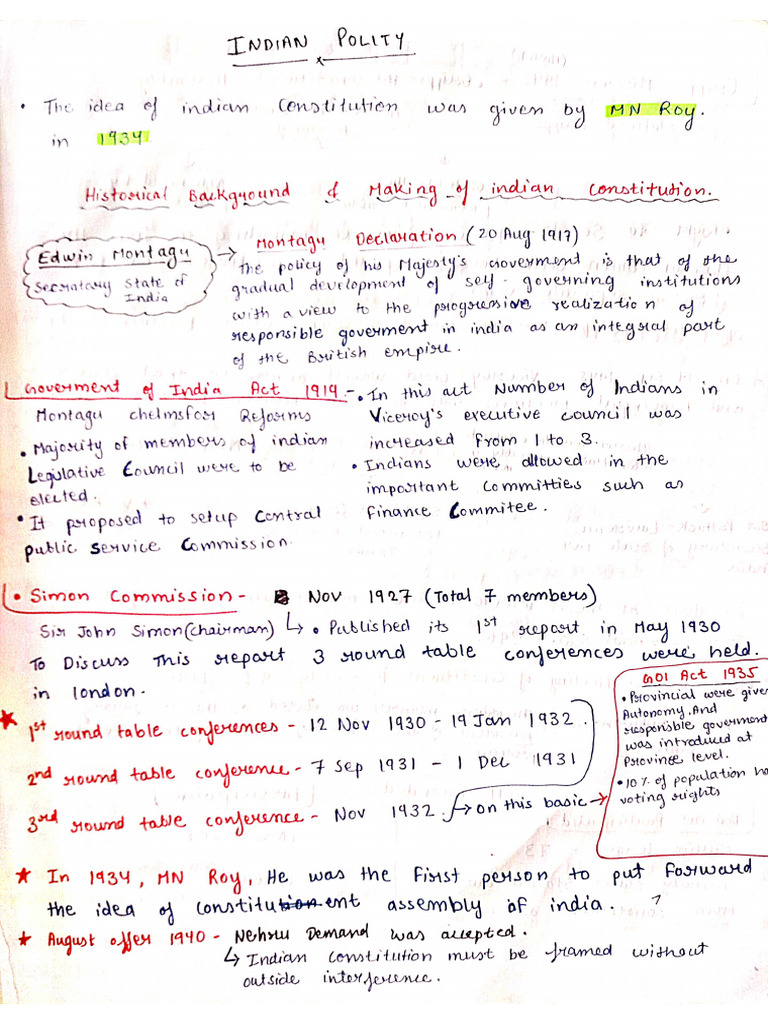 INDIAN POLITY
• The idea of indian constitution was given by MN Roy.
in 1934
Historical Background & Making of indian constitution.
Edwin Montagu
Secratary State of
India
→ Montagu Declaration (20 Aug 1917)
the policy of his Majesty's Goverment is that of the
gradual development of self-governing institutions
with a view to the progressive realization of
responsible goverment in india as an integral part
of the British empire.
Goverment of India Act 1919 -
Montagu chelmsfor Reforms
• Majority of members of indian
Legulative Council were to be
elected.
• It proposed to setup Central
public service Commission.
• In this act Number of Indians in
Viceroy's executive council was
increased from 1 to 3.
• Indians were allowed in the
important committies such as
finance Commitee.
• Simon Commission - Nov 1927 (Total 7 members)
Sir John Simon (chairman) ↳ • Published its 1st report in May 1930
To Discuss This report 3 round table conferences were held.
in london.
★ 1st round table conferences - 12 Nov 1930 - 19 Jan 1932.
2nd round table conference - 7 Sep 1931 - 1 Dec 1931
3rd round table conference - Nov 1932. → on this basic →
GOI Act 1935
• Provincial were given
Autonomy. And
responsble goverment
was introduced at
Province level.
• 10% of population ha
voting rights
★ In 1934, MN Roy, He was the first person to put forward
the idea of constituent assembly of india.
★ August offer 1940 - Nehru Demand was accepted.
↳ Indian constitution must be framed without
outside interference.